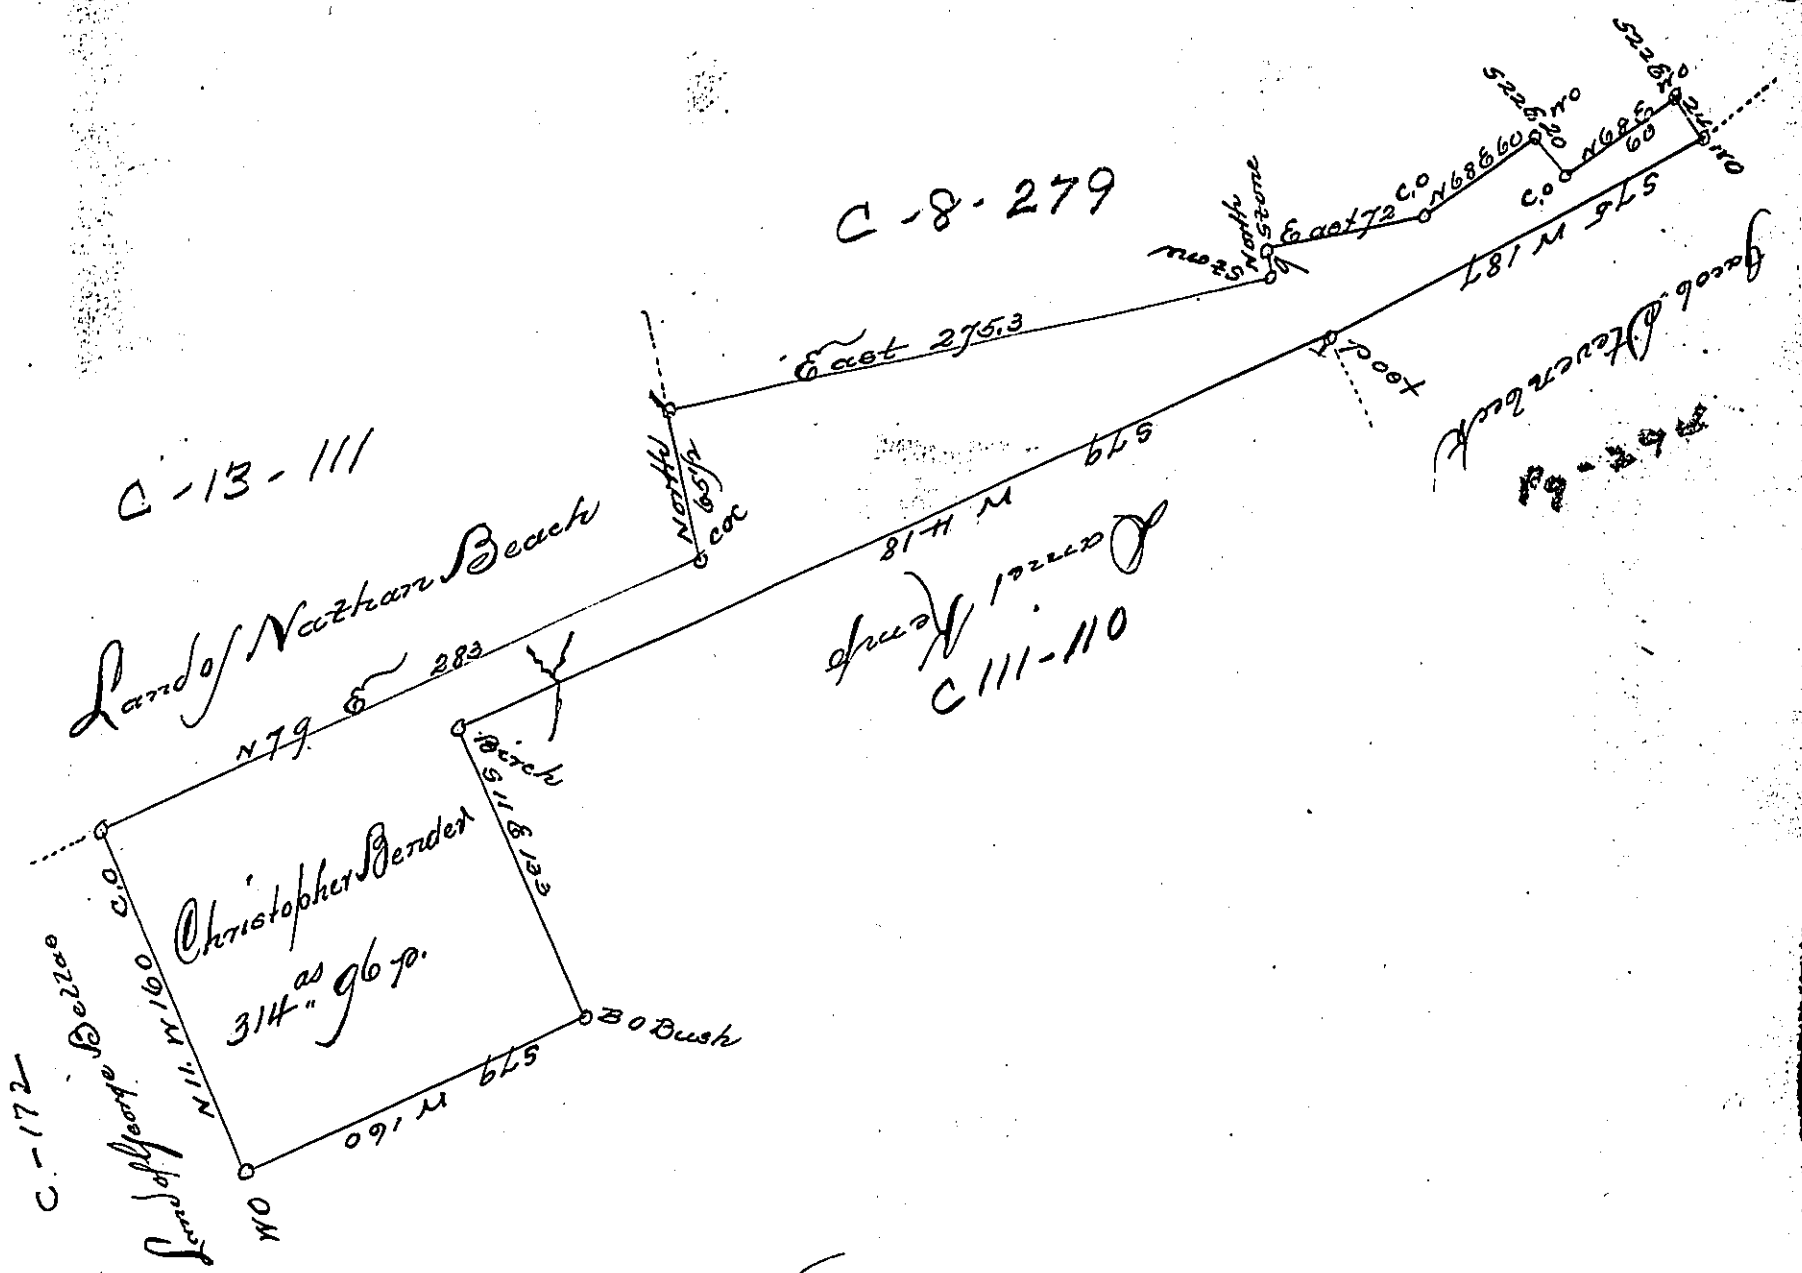 C-8-279
C-13-111
Land of Nathan Beach
N 79 E 283
cor
North 65½
East 275.3
Stone
North 6
Stone
East 72
C.O
N 68 E 60
W O
S 22 E 20
C.O
N 68 E 60
S 22 E 24
W O
S 75 W 187
Jacob
Post
S 79 W 418
Daniel Kemp
C 111-110
Birch
S 11 E 133
B O Bush
S 79 W 160
W O
N 11. W 160
C.O.
Christopher Bender
314 as 96 p.
Land of George
C.-172